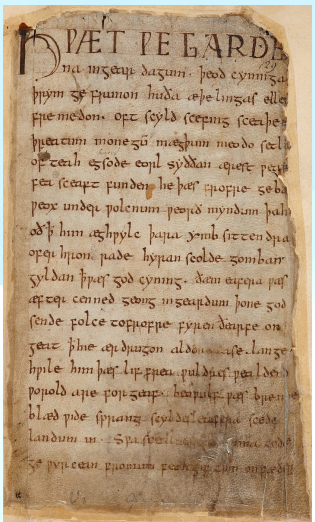 HǷÆT ǷE GARDE
na ingear dagum . þeod cyninga
þrym ge frunon huða æþelingas elle
fre medon . oft scyld scefing sceaþe
þreatum monegū mægþum meodo setla
of teah egsode eorl syððan ærest ƿear
fea sceaft funden he þæs frofre geba
ƿeox under ƿolcnum ƿeorð myndum þah
oð ꝥ him æghƿylc þara ymb sittendra
ofer hron rade hyran scolde gomban
gyldan ꝥ ƿæs god cyning . ðæm eafera ƿæs
æfter cenned geong ingeardum þone god
sende folce tofrofre fyren ðearfe on
geat ꝥ hie ær drugon aldor ase . lange
hƿile him þæs lif frea ƿuldres ƿealdend
ƿorold are for geaf . beoƿulf ƿæs breme
blæd ƿide sprang scyldes eafera scede
landum in . Sƿa sceal guma gode
ge ƿyrcean fromum feoh giftum on